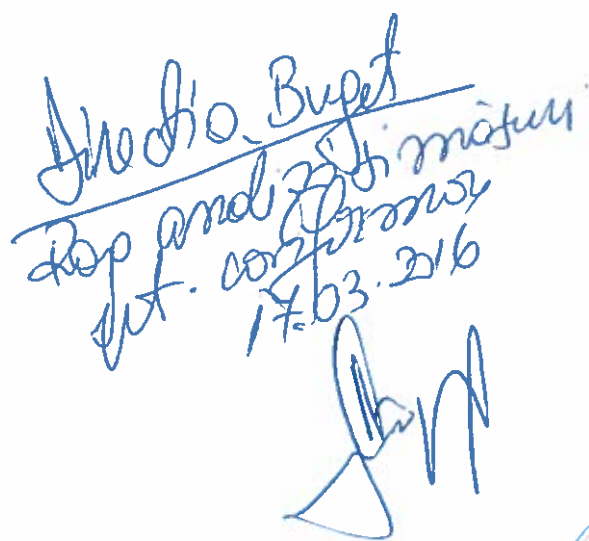 Direcția Buget
Rog analizați măsuri
pt. conformare
17.03.2016